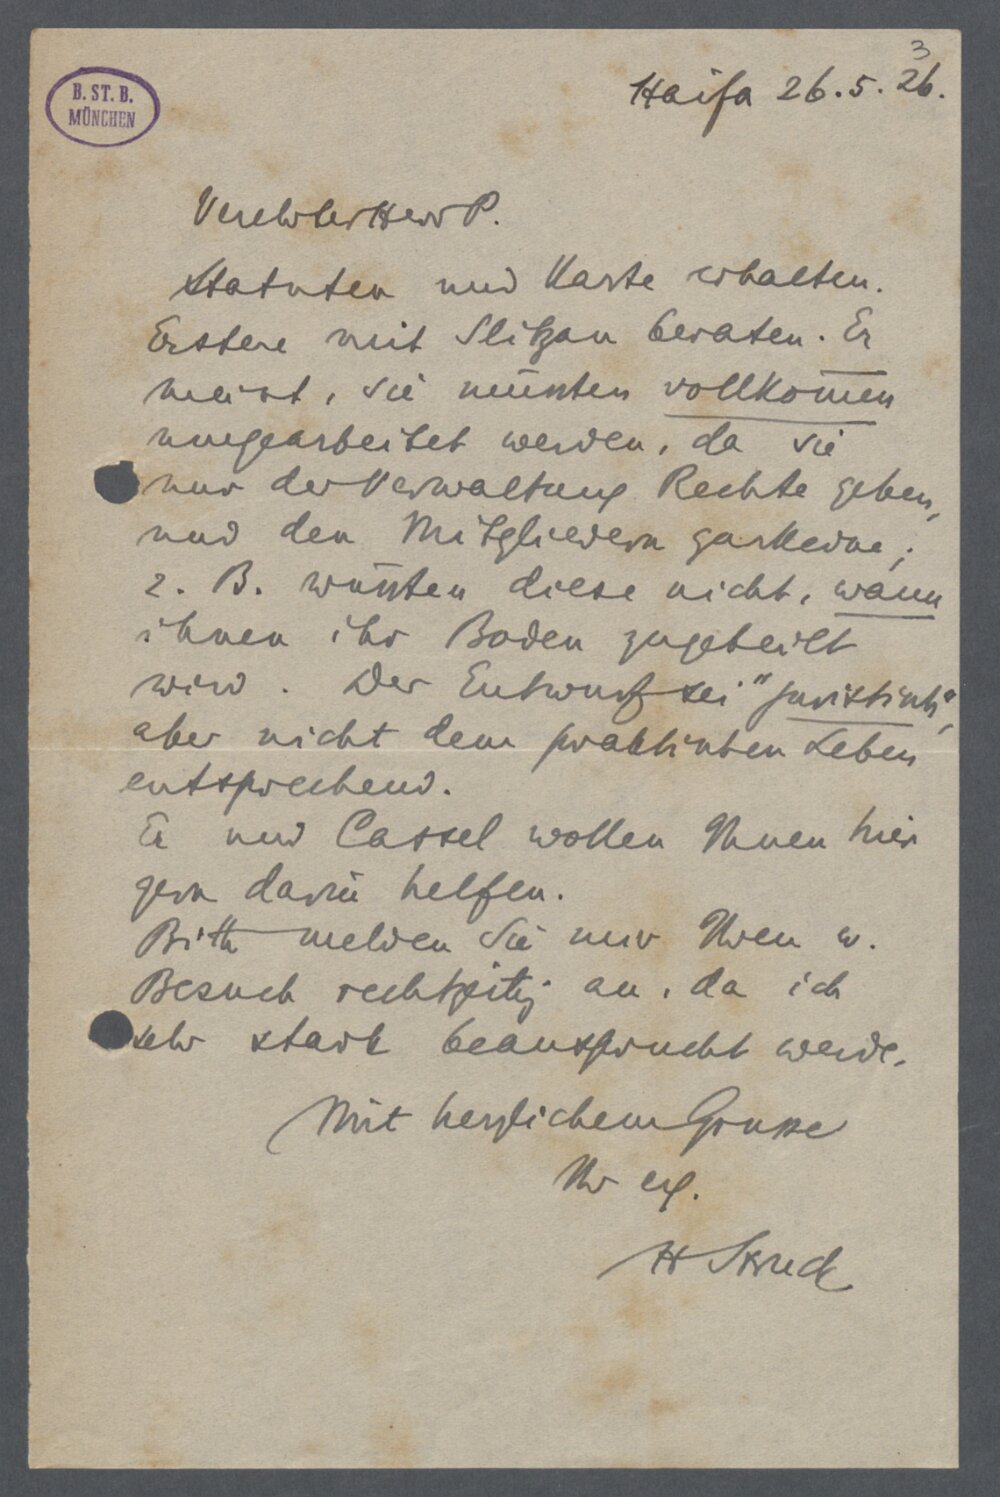 3
B. ST. B.
MÜNCHEN
Haifa 26. 5. 26.
Verehrter Herr P.
Statuten und Karte erhalten.
Erstere mit Slitzan beraten. Er
meint, sie müssten vollkom̅en
umgearbeitet werden, da sie
nur der Verwaltung Rechte geben,
und den Mitgliedern garkeine;
z. B. wüssten diese nicht, wann
ihnen ihr Boden zugeteilt
wird. Der Entwurf sei "juristisch",
aber nicht dem praktischen Leben
entsprechend.
Er und Cassel wollen Ihnen hier
gern darin helfen.
Bitte melden Sie nur Ihren w.
Besuch rechtzeitig an, da ich
sehr stark beansprucht werde.
Mit herzlichem Grusse
Ihr erg.
H Struck